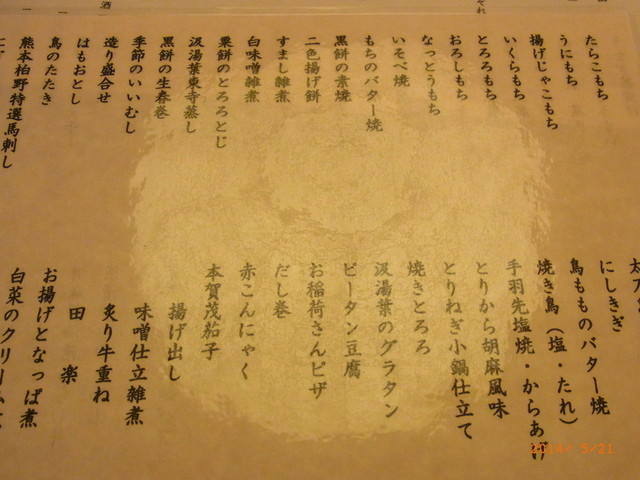 たらこもち
うにもち
揚げじゃこもち
いくらもち
とろろもち
おろしもち
なっとうもち
いそべ焼
もちのバター焼
黒餅の素焼
二色揚げ餅
すまし雑煮
白味噌雑煮
粟餅のとろろとじ
汲湯葉東寺蒸し
黒餅の生春巻
季節のいいむし
造り盛合せ
はもおとし
鳥のたたき
熊本柏野特選馬刺し
にしきぎ
鳥もものバター焼
焼き鳥（塩・たれ）
手羽先塩焼・からあげ
とりから胡麻風味
とりねぎ小鍋仕立て
焼きとろろ
汲湯葉のグラタン
ピータン豆腐
お稲荷さんピザ
だし巻
赤こんにゃく
本賀茂茄子
揚げ出し
味噌仕立雑煮
炙り牛重ね
田楽
お揚げとなっぱ煮
白菜のクリーム
2014 5/21